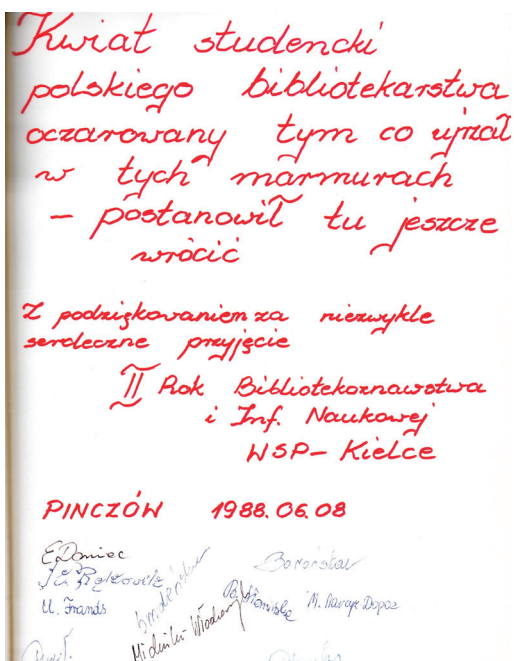 Kwiat studencki
polskiego bibliotekarstwa
oczarowany tym co ujrzał
w tych marmurach
– postanowił tu jeszcze
wrócić
Z podziękowaniem za niezwykle
serdeczne przyjęcie
II Rok Bibliotekoznawstwa
i Inf. Naukowej
WSP – Kielce
PINCZÓW 1988.06.08
E. Doniec
U. Francis